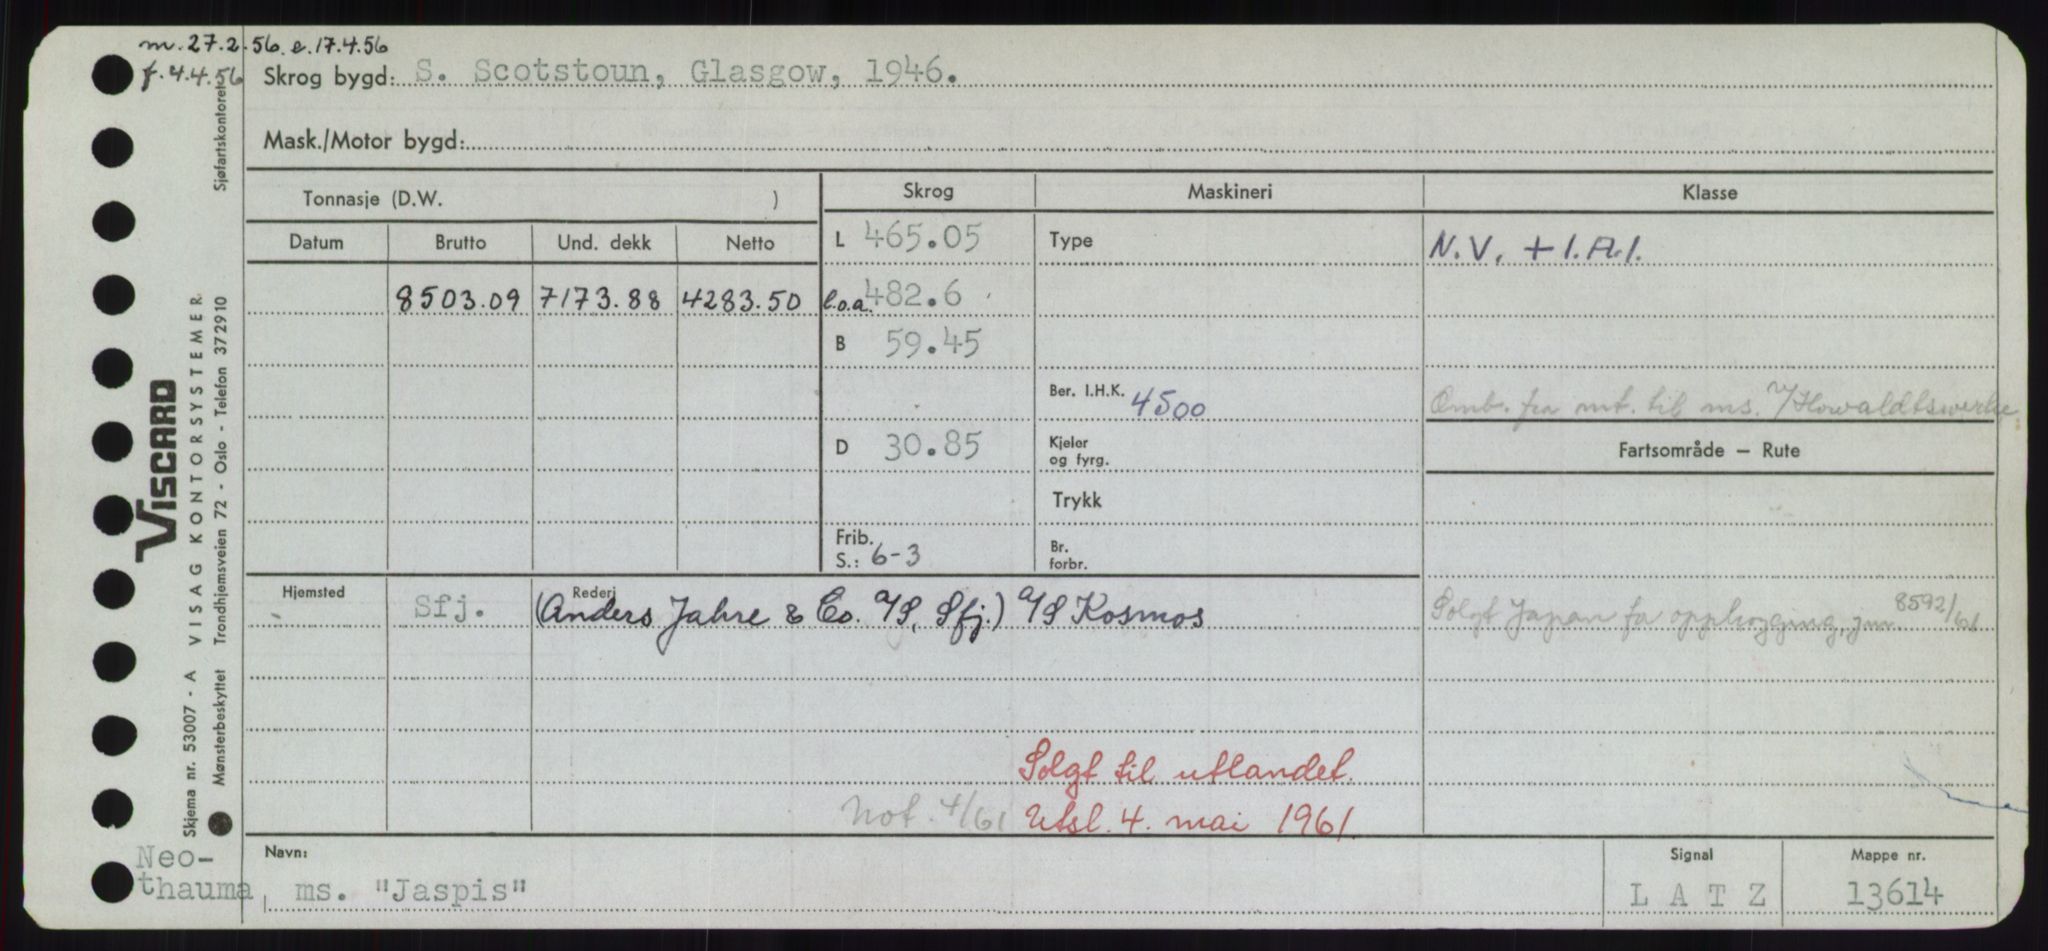 m. 27.2.56. e. 17.4.56
f. 4.4.56
Skrog bygd: S. Scotstoun, Glasgow, 1946.
Mask./Motor bygd:
Tonnasje (D.W. )
Skrog
Maskineri
Klasse
Datum
Brutto
Und. dekk
Netto
L 465.05
Type
N.V. + 1.A.1.
8503.09
7173.88
4283.50
l.o.a. 482.6
B 59.45
Ber. I.H.K. 4500
Omb. fra mt. til ms. v/Howaldtswerke
D 30.85
Kjeler
og fyrg.
Fartsområde – Rute
Trykk
Frib.
S.: 6-3
Br.
forbr.
Hjemsted
Sfj.
Rederi
(Anders Jahre & Co. A/S, Sfj.) A/S Kosmos
Solgt Japan for opphogging, jnr. 8592/61
Solgt til utlandet.
Not. 4/61 Utsl. 4. mai 1961
Neo-
thauma
Navn:
ms. "Jaspis"
Signal
L A T Z
Mappe nr.
13614
VISCARD
Skjema nr. 53007 - A VISAG KONTORSYSTEMER
Mønsterbeskyttet Trondhjemsveien 72 - Oslo - Telefon 372910
Sjøfartskontoret